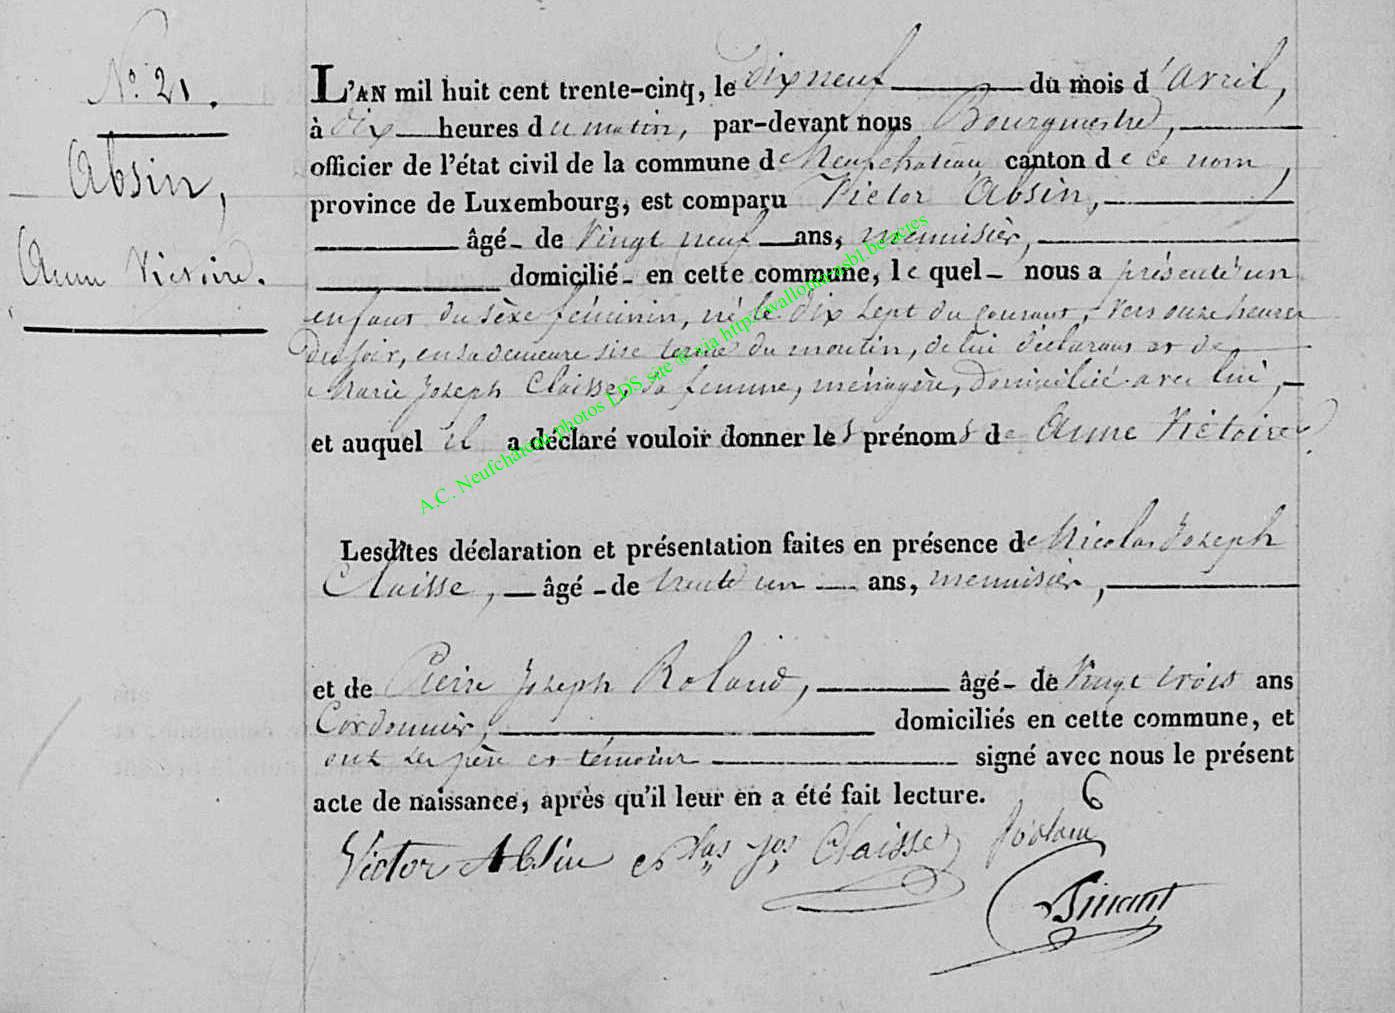 N.° 21.
Absin,
Anne Victoire.
L'AN mil huit cent trente-cinq, le dix neuf du mois d'avril,
à dix heures du matin, par-devant nous Bourgmestre,
officier de l'état civil de la commune de Neufchateau canton de ce nom,
province de Luxembourg, est comparu Victor Absin,
âgé de vingt neuf ans, menuisier,
domicilié en cette commune, lequel nous a présenté un
enfant du sèxe féminin, né le dix sept du courant, vers onze heures
du soir, en sa demeure sise du moutin, de lui déclarant et de
Marie Joseph Claisse, sa femme, ménagère, domiciliée avec lui,
et auquel il a déclaré vouloir donner les prénoms de Anne Victoire.
Lesdites déclaration et présentation faites en présence de Nicolas Joseph
Claisse, âgé de trente un ans, menuisier,
et de Pierre Joseph Roland, âgé de vingt trois ans
Cordonnier, domiciliés en cette commune, et
ont les père et témoins signé avec nous le présent
acte de naissance, après qu'il leur en a été fait lecture.
6
Victor Absin las jos Claisse
A.C. Neufchâteau photos LDS site via http://wallonia asbl.be/actes